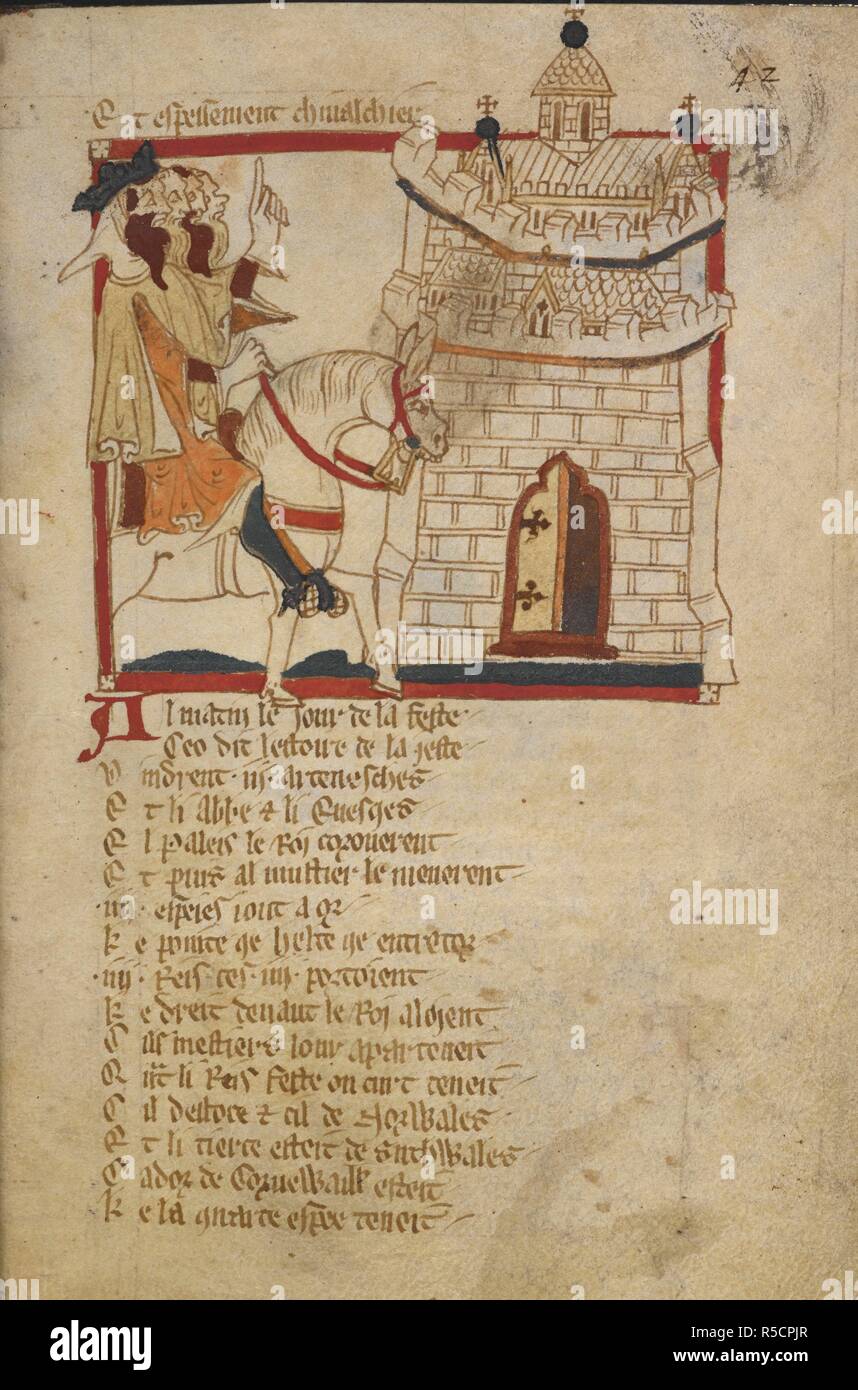 42
E t espessement chiualchier
A l matin le jour de la feste
C eo dit lestoire de la geste
V indrent iij arceuesches
E t li Abbe & li Euesqes
E l Paleis le Roi coronerent
E t puis al mustier le menerent
iiij espeies iout a or
k e pointe qe helte qe entretor
iiij Reis ces iiij portoient
k e dreit deuant le Roi aloient
C ils mestiers lour aparteneit
Q nt li Reis feste ou curt teneit
C il descoce & cil de Norwales
E t li tierce esteit de Suthwales
C ador de Cornewaill esteit
k e la quarte espee teneit
alamy
Image ID: R5CPJR
www.alamy.com